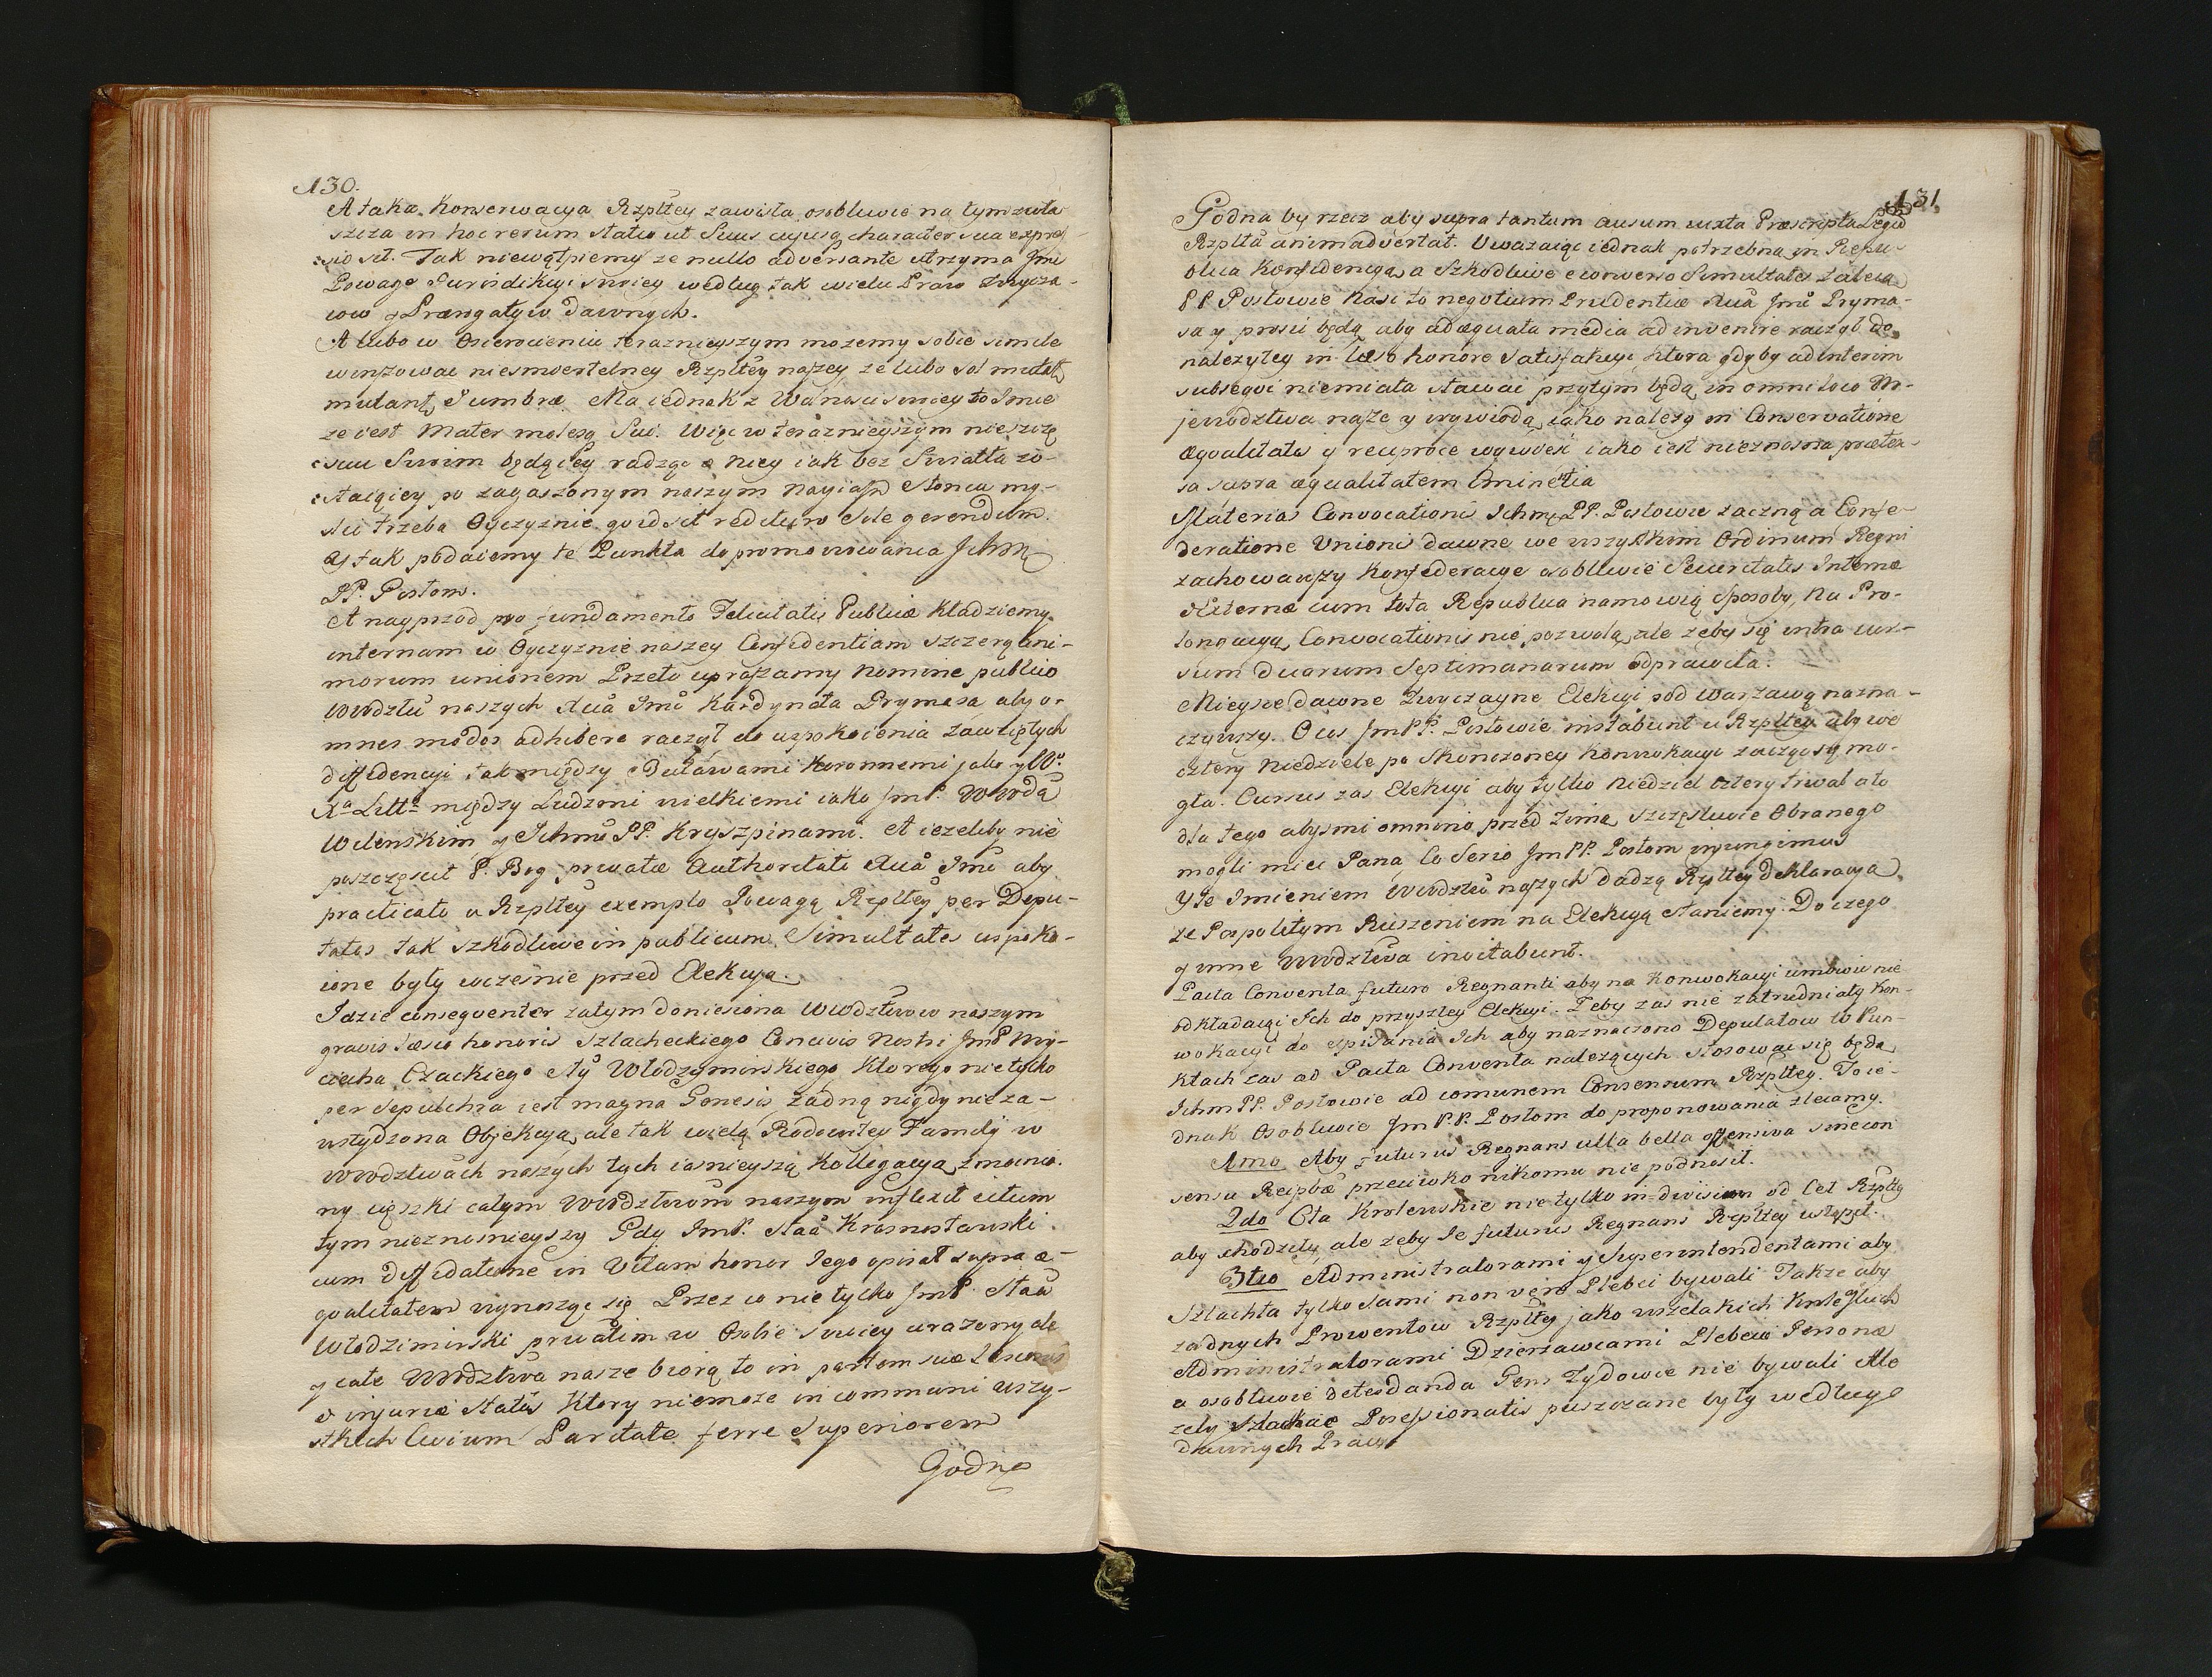 130.
A taka Konserwacya Rzpltey zawisła osobliwie na tym zwła-
szcza in hoc rerum statu ut Suus cujusq character sua expres-
sio sit. Tak niewątpiemy ze nullo adversante utrzyma Jmć
Powagę Jurisdikcyi swoiey według tak wielu Praw Zwycza-
iow y Prærogatyw dawnych.
A lubo w Osieroceniu teraznieyszym mozemy sobie simile
winszować niesmiertelney Rzpltey naszey ze lubo sol mutat
mutant, et umbræ. Ma iednak z Wanosu swiey to Imie
ze iest Mater molesq Sui. Więc w teraznieyszym nieszczę-
sciu Swoim będącey radząc o niey iak bez Swiatła zo-
staiącey po zagaszonym naszym nayiasn Słoncu my-
slić trzeba Oyczyznie quid sit reditu[...] Sole gerendum.
Y tak podaiemy te Punkta do promowowania Ichm
PP. Posłom.
A nayprzod pro fundamento Felicitatis Publicæ kładziemy
internam w Oyczyznie naszey Confidentiam szczerą Ani-
morum unionem Przeto upraszamy nomine publico
Wwdztw naszych Xcia Jmci Kardynała Prymasa aby o-
mnes modos adhibere raczył do uspokoienia zawziętych
diffidencyi tak między Buławami Koronnemi jako y W°
Xa Litto między Ludzmi wielkiemi iako JmP. Wwdą
Wilenskim y Ichmć PP. Kryszpinami. A iezeliby nie
poszczęscił P. Bog privatæ Authoritati Xcia Jmci aby
practicato u Rzpltey exemplo Powagą Rzpltey per Depu-
tatos tak szkodliwe in publicum Simultates uspoko-
ione były wczesnie przed Elekcyą.
Idzie consequenter zatym doniesiona Wwdztwow naszym
gravis læsio honoris Szlacheckiego Concivis Nostri JmP Woy-
ciecha Czackiego Sty Włodzimirskiego, Ktorego nie tylko
per sepulchra iest magna Genesis żadną nigdy nie za-
wstydzona Objekcyą, ale tak wielą Rodowitey Familÿ w
Wwdztwach naszych tych iasnieyszą Kollegacyą zmocnio-
ny cięszki całym Wwdztwom naszym inflixit ictum
tym nieznosnieyszy Gdy JmP. Staa Krasnostawski
cum diffidatione in Vitam honor Iego opisał supra æ-
qualitatem wynosząc się Przez co nie tylko JmP. Staa
Włodzimirski privatim w Osobie swoiey urazony ale
y całe Wwdztwa nasze biorą to in partem suæ Læsionis
et injuriæ status Ktory niemoze in communi wszy-
stkich Civium Paritate ferre Superiorem
Godna
131.
Godna by rzecz aby supra tantum ausum iuxta Præscripta Legū
Rzplta animadvertat. Uwazaiąc iednak potrzebną in Repu-
blica Konfidencyą, a Szkodliwe e converso Simultates zalecą
PP Posłowie nasi to negotium Prudentiæ Xcia Jmci Pryma-
sa y prosić będą aby adæquata media ad invenire raczył do
nalezytey in læso honore Satisfakcyi ktora gdyby ad interim
subsequi niemiała stawać przytym będą in omni loco Wo-
jewodztwa nasze y wywiodą, iako nalezy in Conservatione
æqualitatis y reciproce wywiesć iako iest nieznosna præten-
sa supra æqualitatem Eminentia
Materias Convocationis Ichmć PP. Posłowie zaczną a Confe-
deratione Unionis dawne, we wszystkim Ordinum Regni
zachowawszy Konfederacye osobliwie Securitatis Internæ
et Externæ cum tota Republica namowią Sposoby, Na Pro-
longacyą Convocationis nie pozwolą, ale zeby się intra cur-
sum duarum Septimanarum odprawiła.
Mieysce dawne Zwyczayne Elekcyi pod Warszawą nazna-
czywszy. O czas JmPP. Posłowie instabunt u Rzpltey aby we
cztery Niedziele po Skonczoney Konwokacyi zacząć się mo-
gła. Cursus zas Elekcyi aby tylko Niedziel cztery trwał a to
dla tego abysmi omnino przed zimą szczęsliwie Obranego
mogli mieć Pana, Co Serio JmPP. Posłom injungimus
Y te Imieniem Wwdztw naszych dadzą Rzpltey deklaracyą
ze Pospolitym Ruszeniem na Elekcyą staniemy. Do czego
y inne Wwdztwa invitabunt.
Pacta Conventa futuro Regnanti aby na Konwokacyi umowić nie
odkładaiąc Ich do przyszłey Elekcyi. Zeby zas nie zatrudniały Kon-
wokacyi do spisania Ich aby naznaczono Deputatow W Pun-
ktach zas ad Pacta Conventa nalezących stosować się będą
Ichm PP. Posłowie ad comunem Consensum Rzpltey. To ie-
dnak Osobliwie Jm P.P. Posłom do proponowania zlecamy.
1mo Aby futurus Regnans ulla bella offensiva sine con
sensu Reipbæ przeciwko nikomu nie podnosił.
2do Cła Krolewskie nie tylko in divisim od Ceł Rzpltey
aby chodziły, ale zeby Ie futurus Regnans Rzpltey ustąpił.
3tio Administratorami y Superintendentami aby
Szlachta tylko Sami non vero Plebei bywali Takze aby
zadnych Prowentow Rzpltey jako wszelakich Krolewskich
Administratorami Dzierzawcami Plebeiæ Personæ
a osobliwie detestanda Gens Zydowie nie bywali Ale
zeby Szlachcie Possessionatis puszczane były według
dawnych Praw